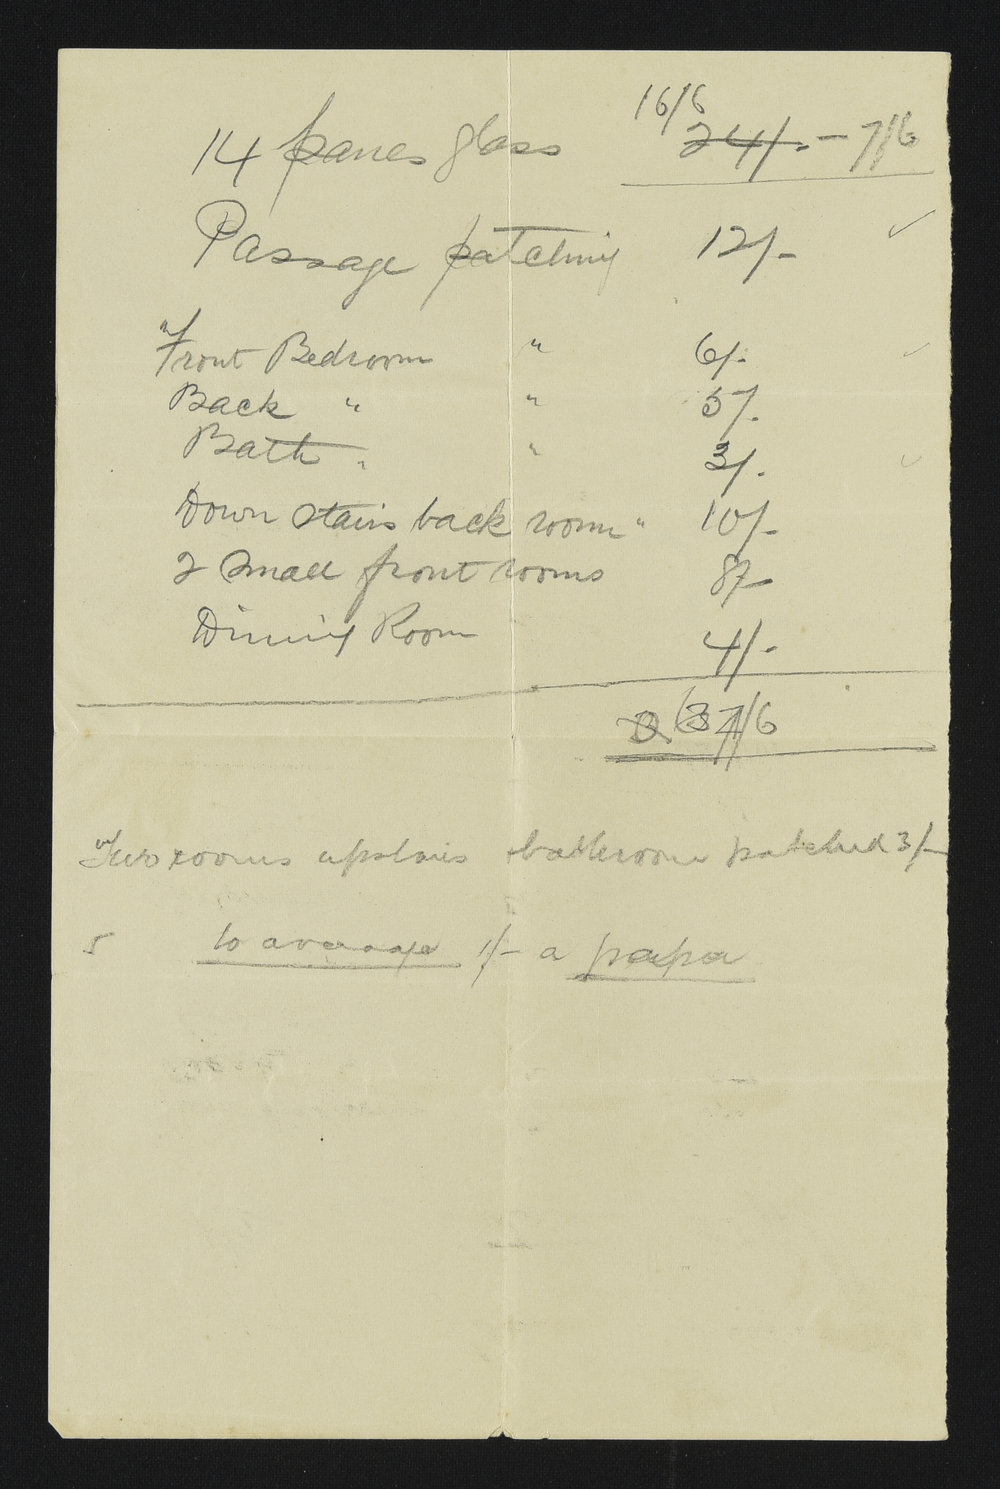 16/6
14 panes glass 24/- - 7/6
Passage patching 12/-
"Front Bedroom " 6/-
Back " " 5/-
Bath " " 3/-
Down stairs back room " 10/-
2 Small front rooms 8/-
Dining Room 4/-
37/6
"Two rooms upstairs + bathroom patched 3/-
5 to average 1/- a papa